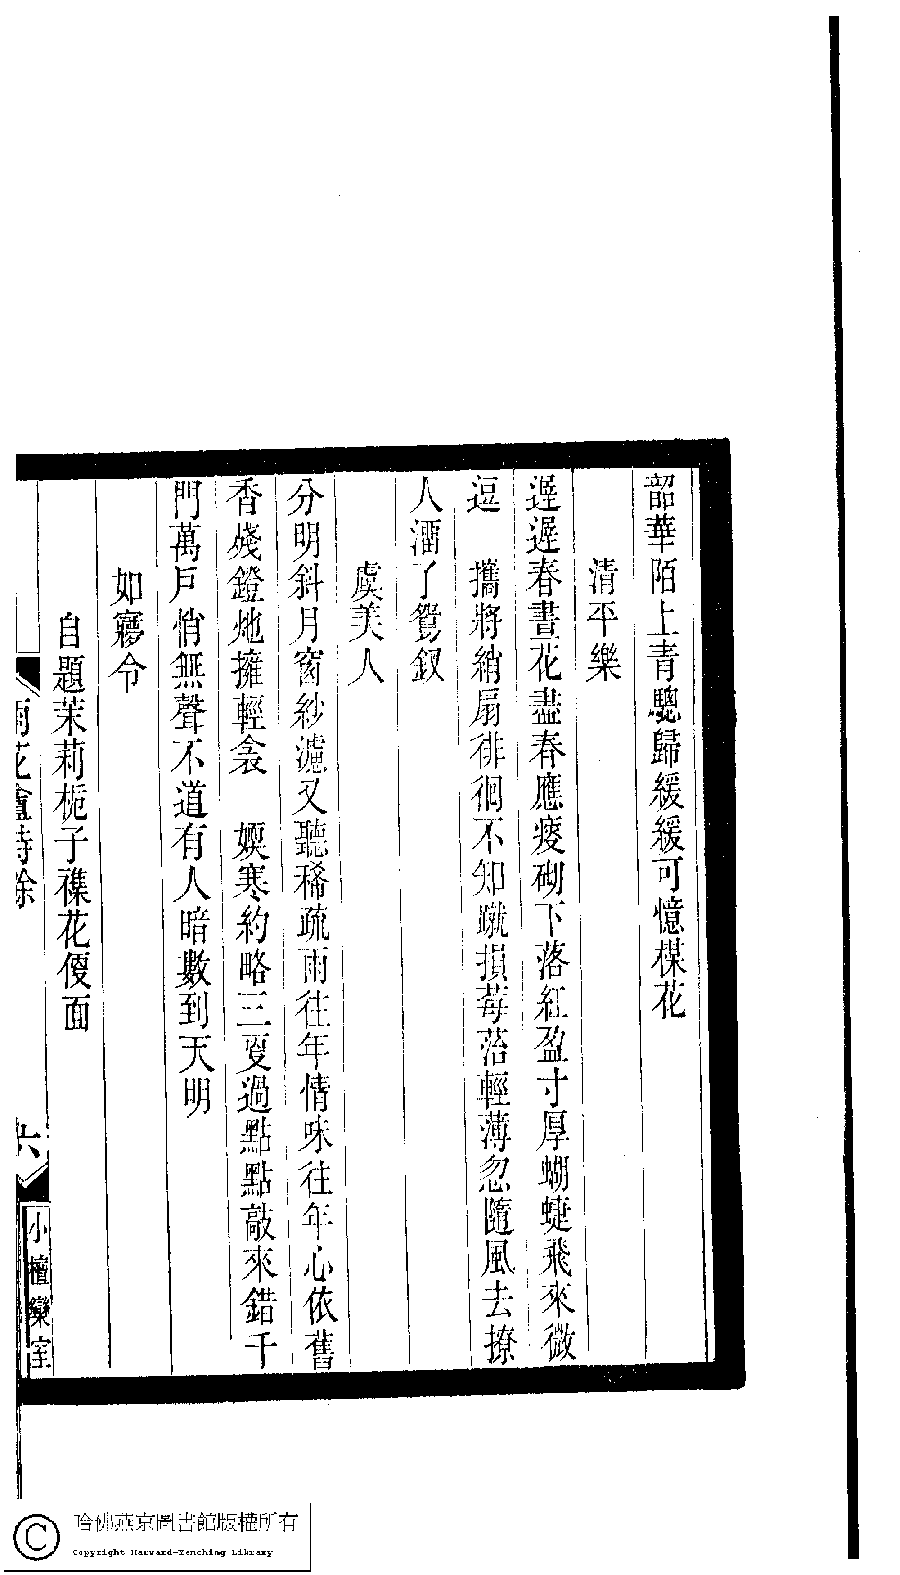 韶華陌上青驄歸緩緩可憶楳花
清平樂
遲遲春晝花盡春應瘦砌下落紅盈寸厚蝴蜨飛來微
逗　攜將綃扇徘徊不知蹴損莓苔輕薄忽隨風去撩
人溜了鴛釵
虞美人
分明斜月窗紗濾又聽稀疏雨往年情味往年心依舊
香殘鐙灺擁輕衾　㜝寒約略三更過點點敲來錯千
門萬戶悄無聲不道有人暗數到天明
如寢令
自題茉莉梔子襍花便面
雨花盦詩餘
六
小檀欒室
哈佛燕京圖書館版權所有
Copyright Harvard-Yenching Library